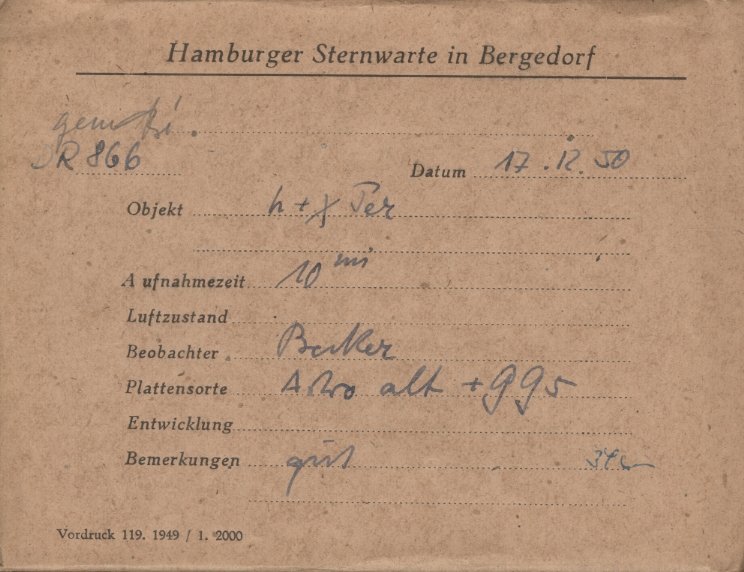 Hamburger Sternwarte in Bergedorf
DR 866
Datum 17.12.50
Objekt h + χ Per
Aufnahmezeit 10 mi
Luftzustand
Beobachter Becker
Plattensorte Astro alt + GG5
Entwicklung
Bemerkungen gut
Vordruck 119. 1949 / 1. 2000